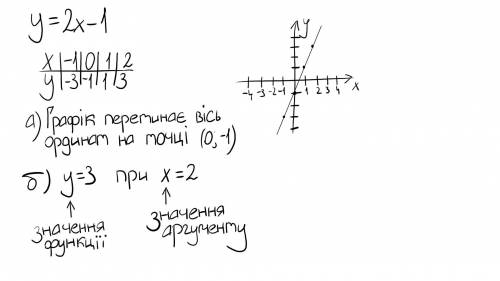 y=2x-1
x | -1 | 0 | 1 | 2
y | -3 | -1 | 1 | 3
а) Графік перетинає вісь
ординат на точці (0,-1)
б) y=3 при x=2
значення
функції
значення
аргументу
y
-4 -3 -2 -1 1 2 3 4 x